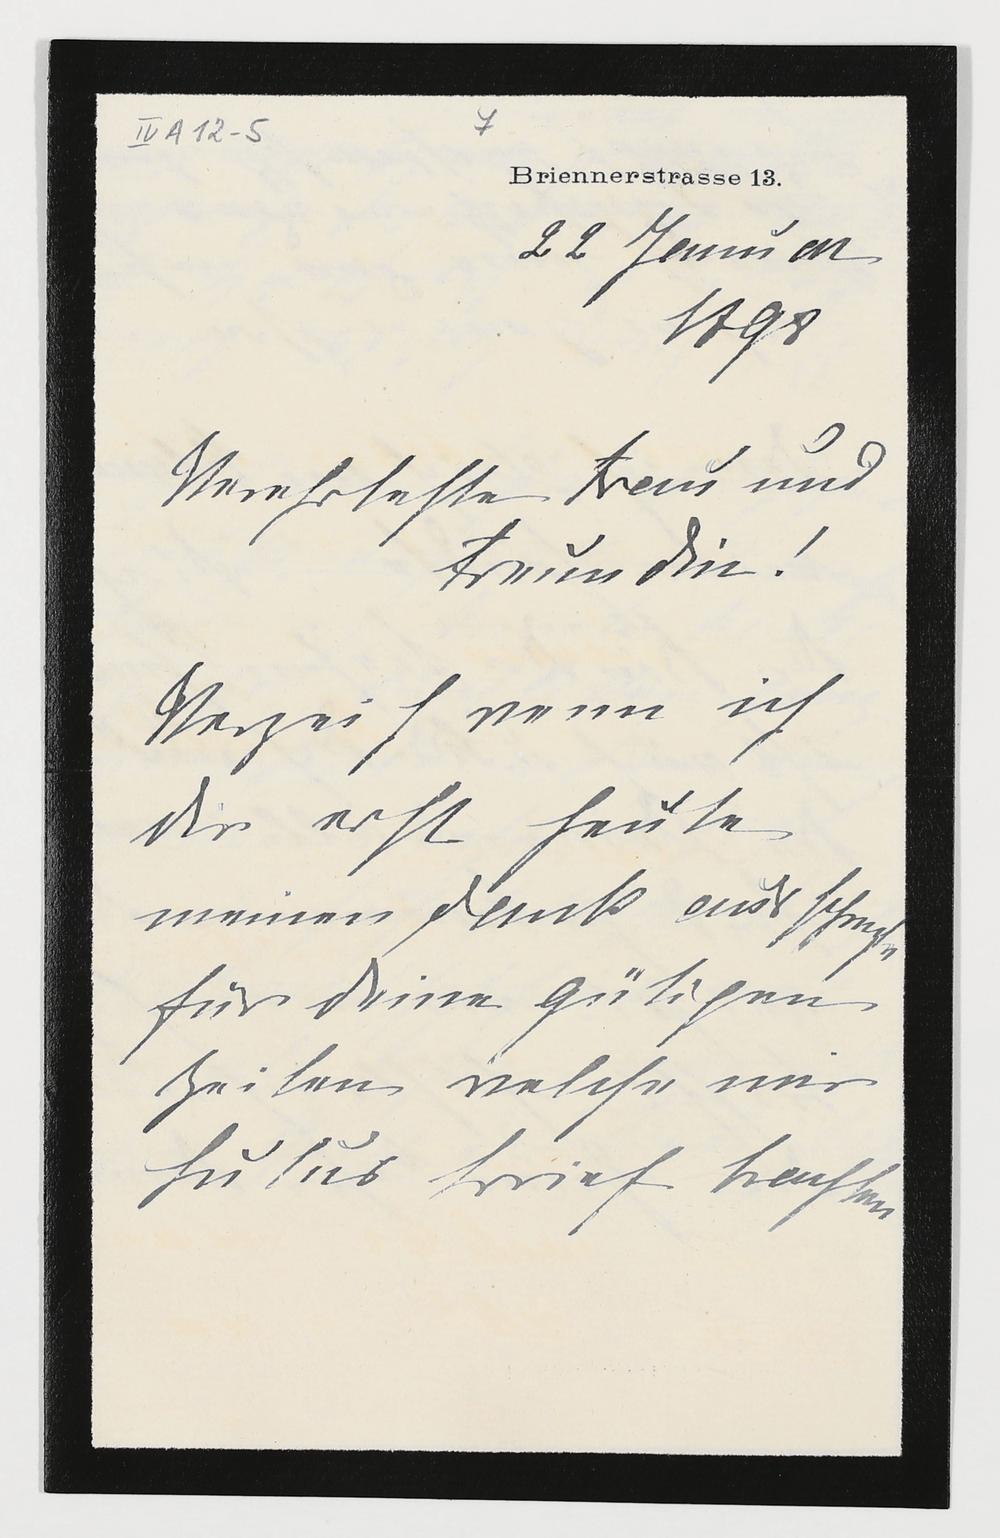 IV A 12-5
7
Briennerstrasse 13.
22 Januar
1898
Verehrteste Frau und
Freundin!
Verzeih wenn ich
dir erst heute
meinen Dank ausspreche
für deine gütigen
Zeilen welche mir
brief brachten